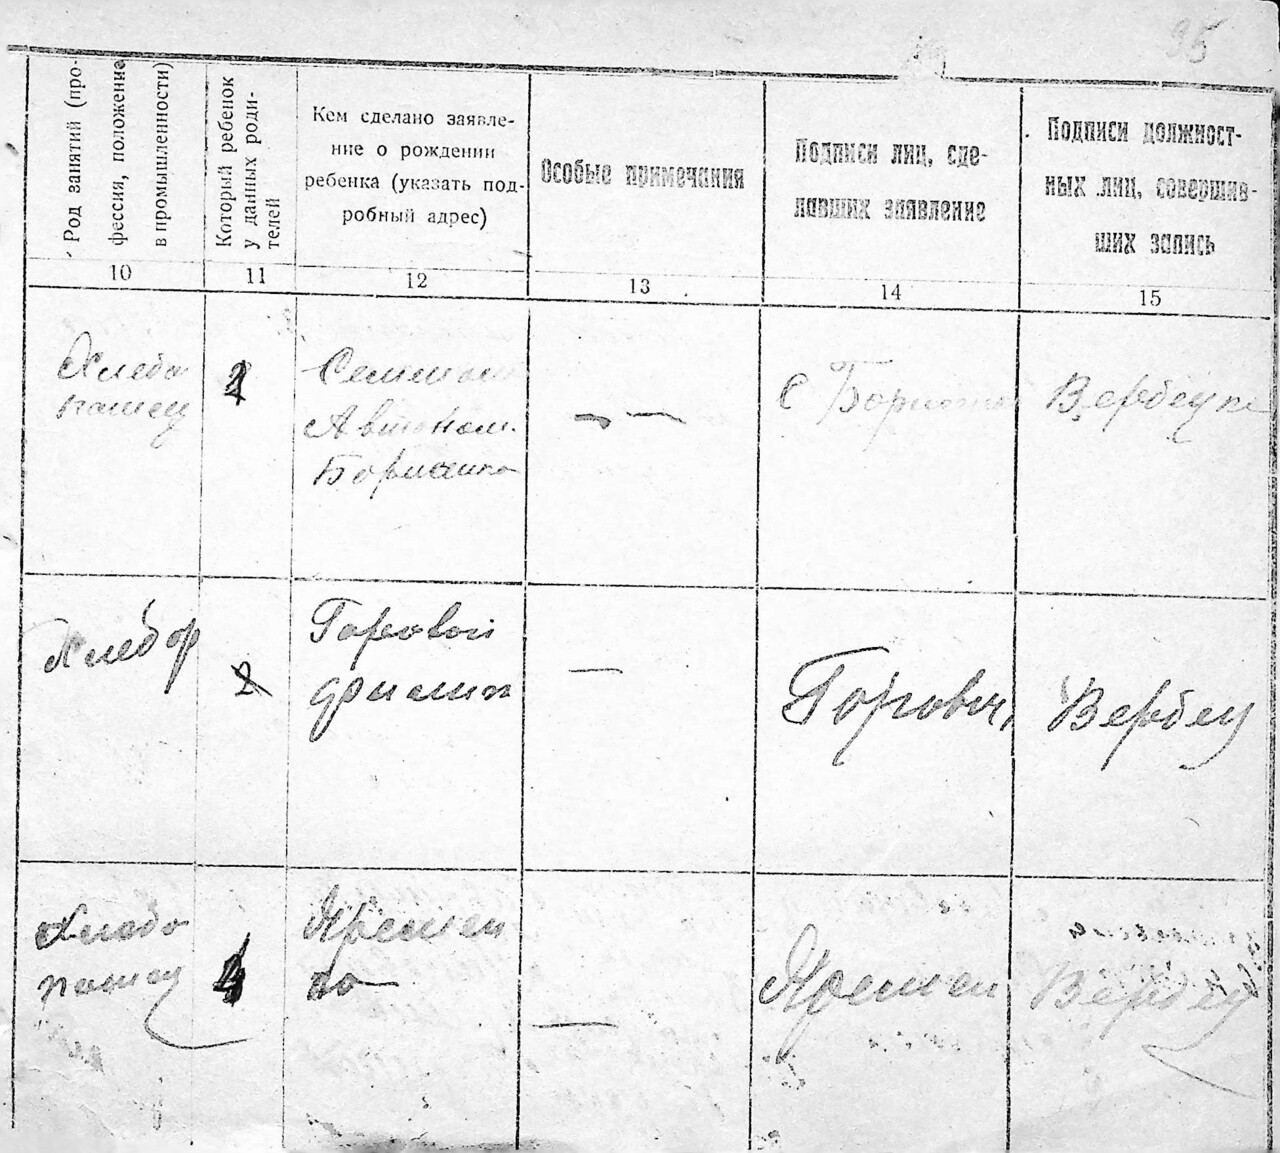 95
Род занятий (про-
фессия, положение
в промышленности)
Который ребенок
у данных роди-
телей
Кем сделано заявле-
ние о рождении
ребенка (указать под-
робный адрес)
Особые примечания
Подписи лиц, сде-
лавших заявление
Подписи должност-
ных лиц, совершив-
ших запись
10
11
12
13
14
15
Хлебо
пашец
Семеном
Автоном.
Борисенко
— —
С Борисен
Вербецк
Хлебор
2
Горовой
—
Горовой
Вербец
Хлебо
пашец
4
Яремен
ко
—
Яремен
Вербец